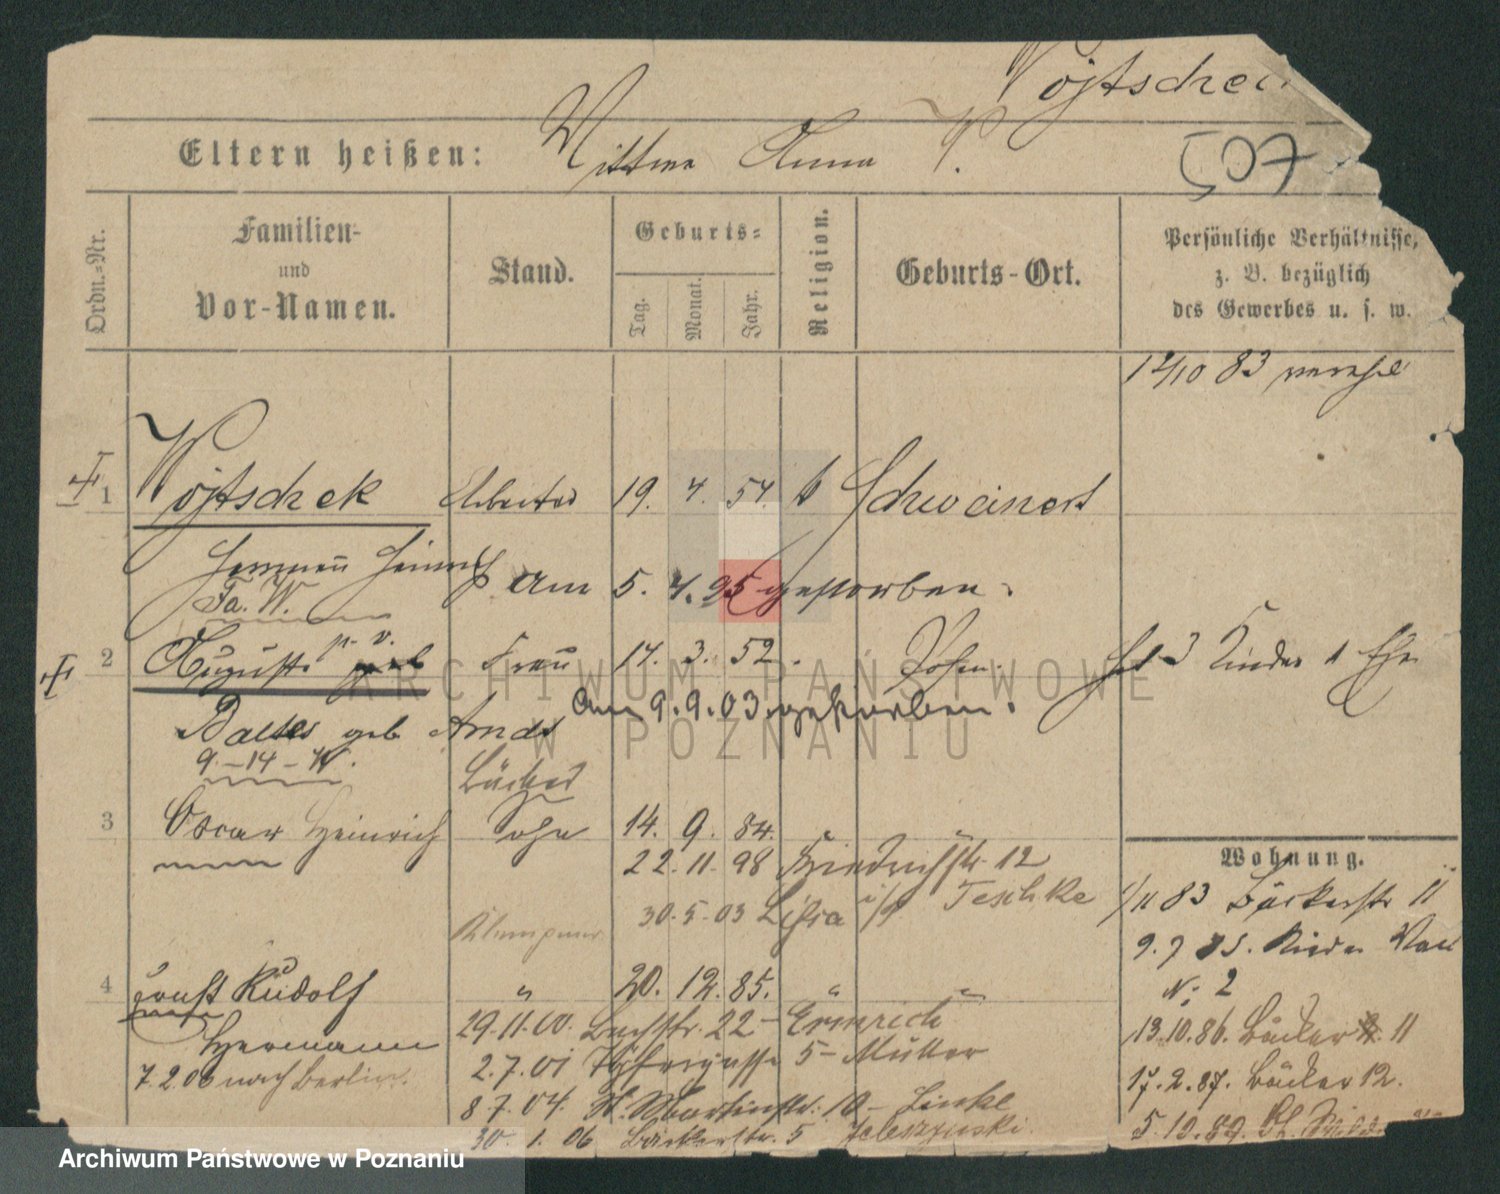 Wojtschek
507
Eltern heißen: Wittwe Anna W.
Ordn.=Nr.
Familien-
und
Vor-Namen.
Stand.
Geburts=
Tag.
Monat.
Jahr.
Religion.
Geburts-Ort.
Persönliche Verhältnisse,
z. B. bezüglich
des Gewerbes u. s. w.
10 83
1 Wojtschek Arbeiter 19. 4. 54. Schweinert
Hermann Heinrich am 5. 4. 95 gestorben.
Fa. W.
2 Auguste p. v. geb Frau 17. 3. 52. Posen. hat 3 Kinder 1 Ehe
am 9.9.03 gestorben.
Baltes geb Arndt
9-14-W.
Bäcker
3 Oscar Heinrich Sohn 14. 9. 84.
Wohnung.
22.11.98 Friedrichstr. 12
83 Bäckerstr 11
30.5.03 Lissa Teschke
Klempner
9.9 85. Wall
N: 2
4 Ernst Rudolf " 20. 12. 85. " "
29.11.00. 22 - Emmrich
13.10.86. Bäcker 11
Hermann
2.7.01 5- Müller
7.2.06 nach Berlin.
17.2.87. Bäcker 12.
8 7.04. St. Martinstr. 10 - Linke
5.10.89.
30. 1. 06 Bäckerstr. 5
ARCHIWUM PAŃSTWOWE
W POZNANIU
Archiwum Państwowe w Poznaniu